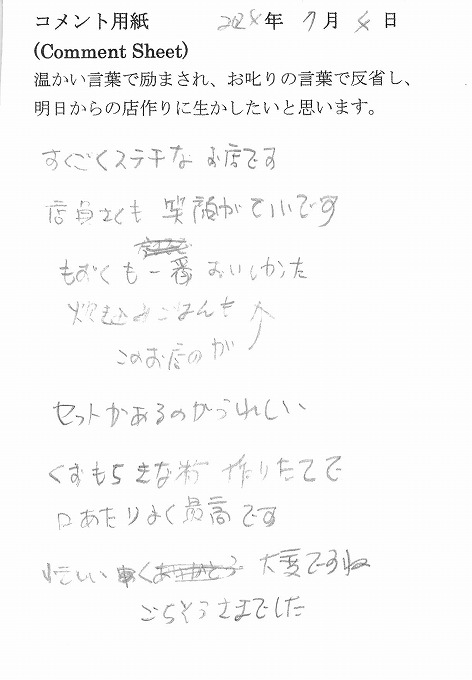 コメント用紙 年 7月 日
(Comment Sheet)
温かい言葉で励まされ、お叱りの言葉で反省し、
明日からの店作りに生かしたいと思います。
すごくステキな お店です
店員さんも 笑顔がていいです
もずくも一番 おいしかった
炊き込みごはんも
このお店のが
セットがあるのがうれしい
くずもち きな粉 作りたてで
口あたりよく最高です
忙しい 大変ですね
ごちそうさまでした